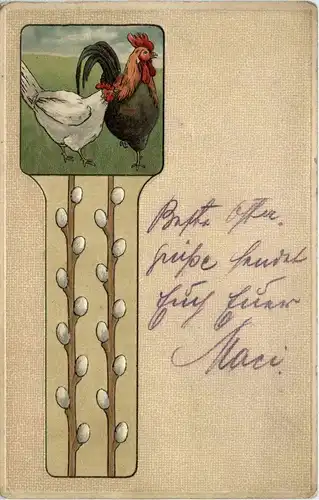 Beste Oster-
grüße sendet
Euch Euer
Maci.